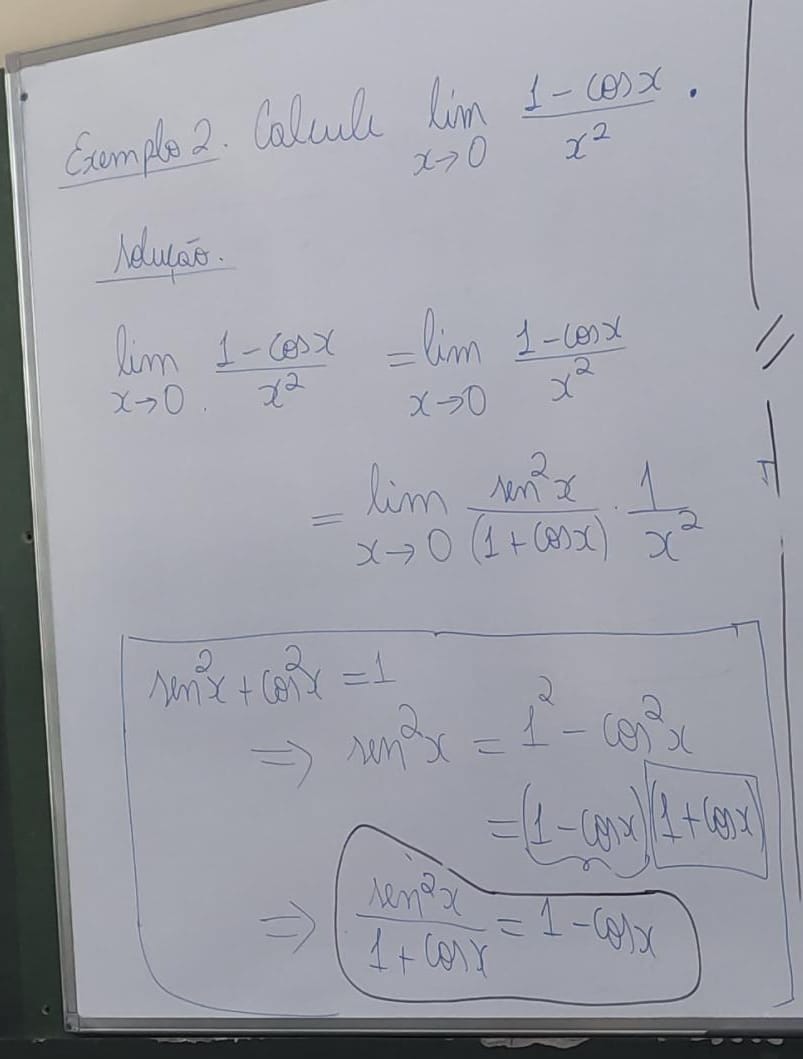 Exemplo 2. Calcule lim x→0 (1 - cos x)/x².
solução.
lim x→0 (1 - cos x)/x² = lim x→0 (1 - cos x)/x²
= lim x→0 sen²x/(1 + cos x) · 1/x²
sen²x + cos²x = 1
⇒ sen²x = 1² - cos²x
= (1 - cos x)(1 + cos x)
⇒ sen²x/(1 + cos x) = 1 - cos x